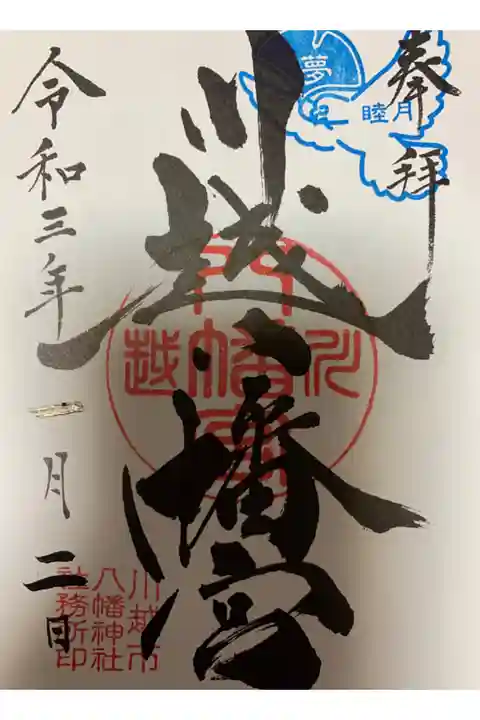 奉拝
夢
月睦
川越八幡宮
川越
八幡宮
令和三年一月二日
川越市
八幡神社
社務所印